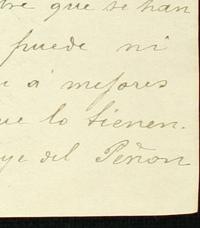 que se han
puede ni
á mejores
que lo tienen.
del Peñon